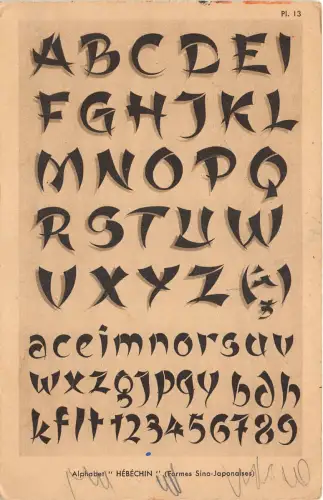 Pl. 13
ABCDEI
FGHJKL
MNOPQ
RSTUW
VXYZ(&)
aceimnorsuv
wxzgjpqy bdh
kflt123456789
Alphabet " HÉBÉCHIN " (Formes Sino-Japonaises)